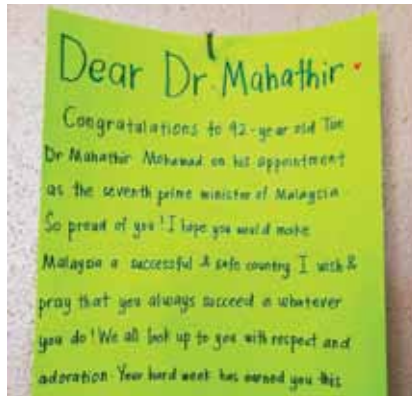 Dear Dr. Mahathir
Congratulations to 92-year old Tun
Dr Mahathir Mohamad on his appointment
as the seventh prime minister of Malaysia
So proud of you! I hope you would make
Malaysia a successful & safe country I wish &
pray that you always succeed in whatever
you do! We all look up to you with respect and
adoration. Your hard work has earned you this